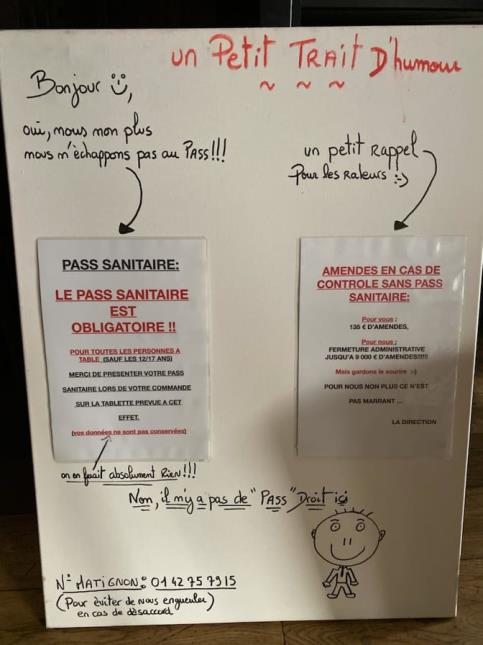 un Petit TRAIT D'humour
Bonjour
oui, nous non plus
nous n'échappons pas au PASS!!!
un petit RAPPEL
Pour les RALEURS :-)
PASS SANITAIRE:
LE PASS SANITAIRE
EST
OBLIGATOIRE !!
POUR TOUTES LES PERSONNES A
TABLE (SAUF LES 12/17 ANS)
MERCI DE PRESENTER VOTRE PASS
SANITAIRE LORS DE VOTRE COMMANDE
SUR LA TABLETTE PREVUE A CET
EFFET.
(vos données ne sont pas conservées)
AMENDES EN CAS DE
CONTROLE SANS PASS
SANITAIRE:
Pour vous :
135 € D'AMENDES,
Pour nous :
FERMETURE ADMINISTRATIVE
JUSQU'A 9 000 € D'AMENDES!!!!!
Mais gardons le sourire :-)
POUR NOUS NON PLUS CE N'EST
PAS MARRANT ...
LA DIRECTION
on en fait absolument RIEN!!!
Non, il n'y a pas de "PASS" Droit ici
N° MATIGNON: 01 42 75 79 15
(Pour éviter de nous engueuler)
en cas de désaccord